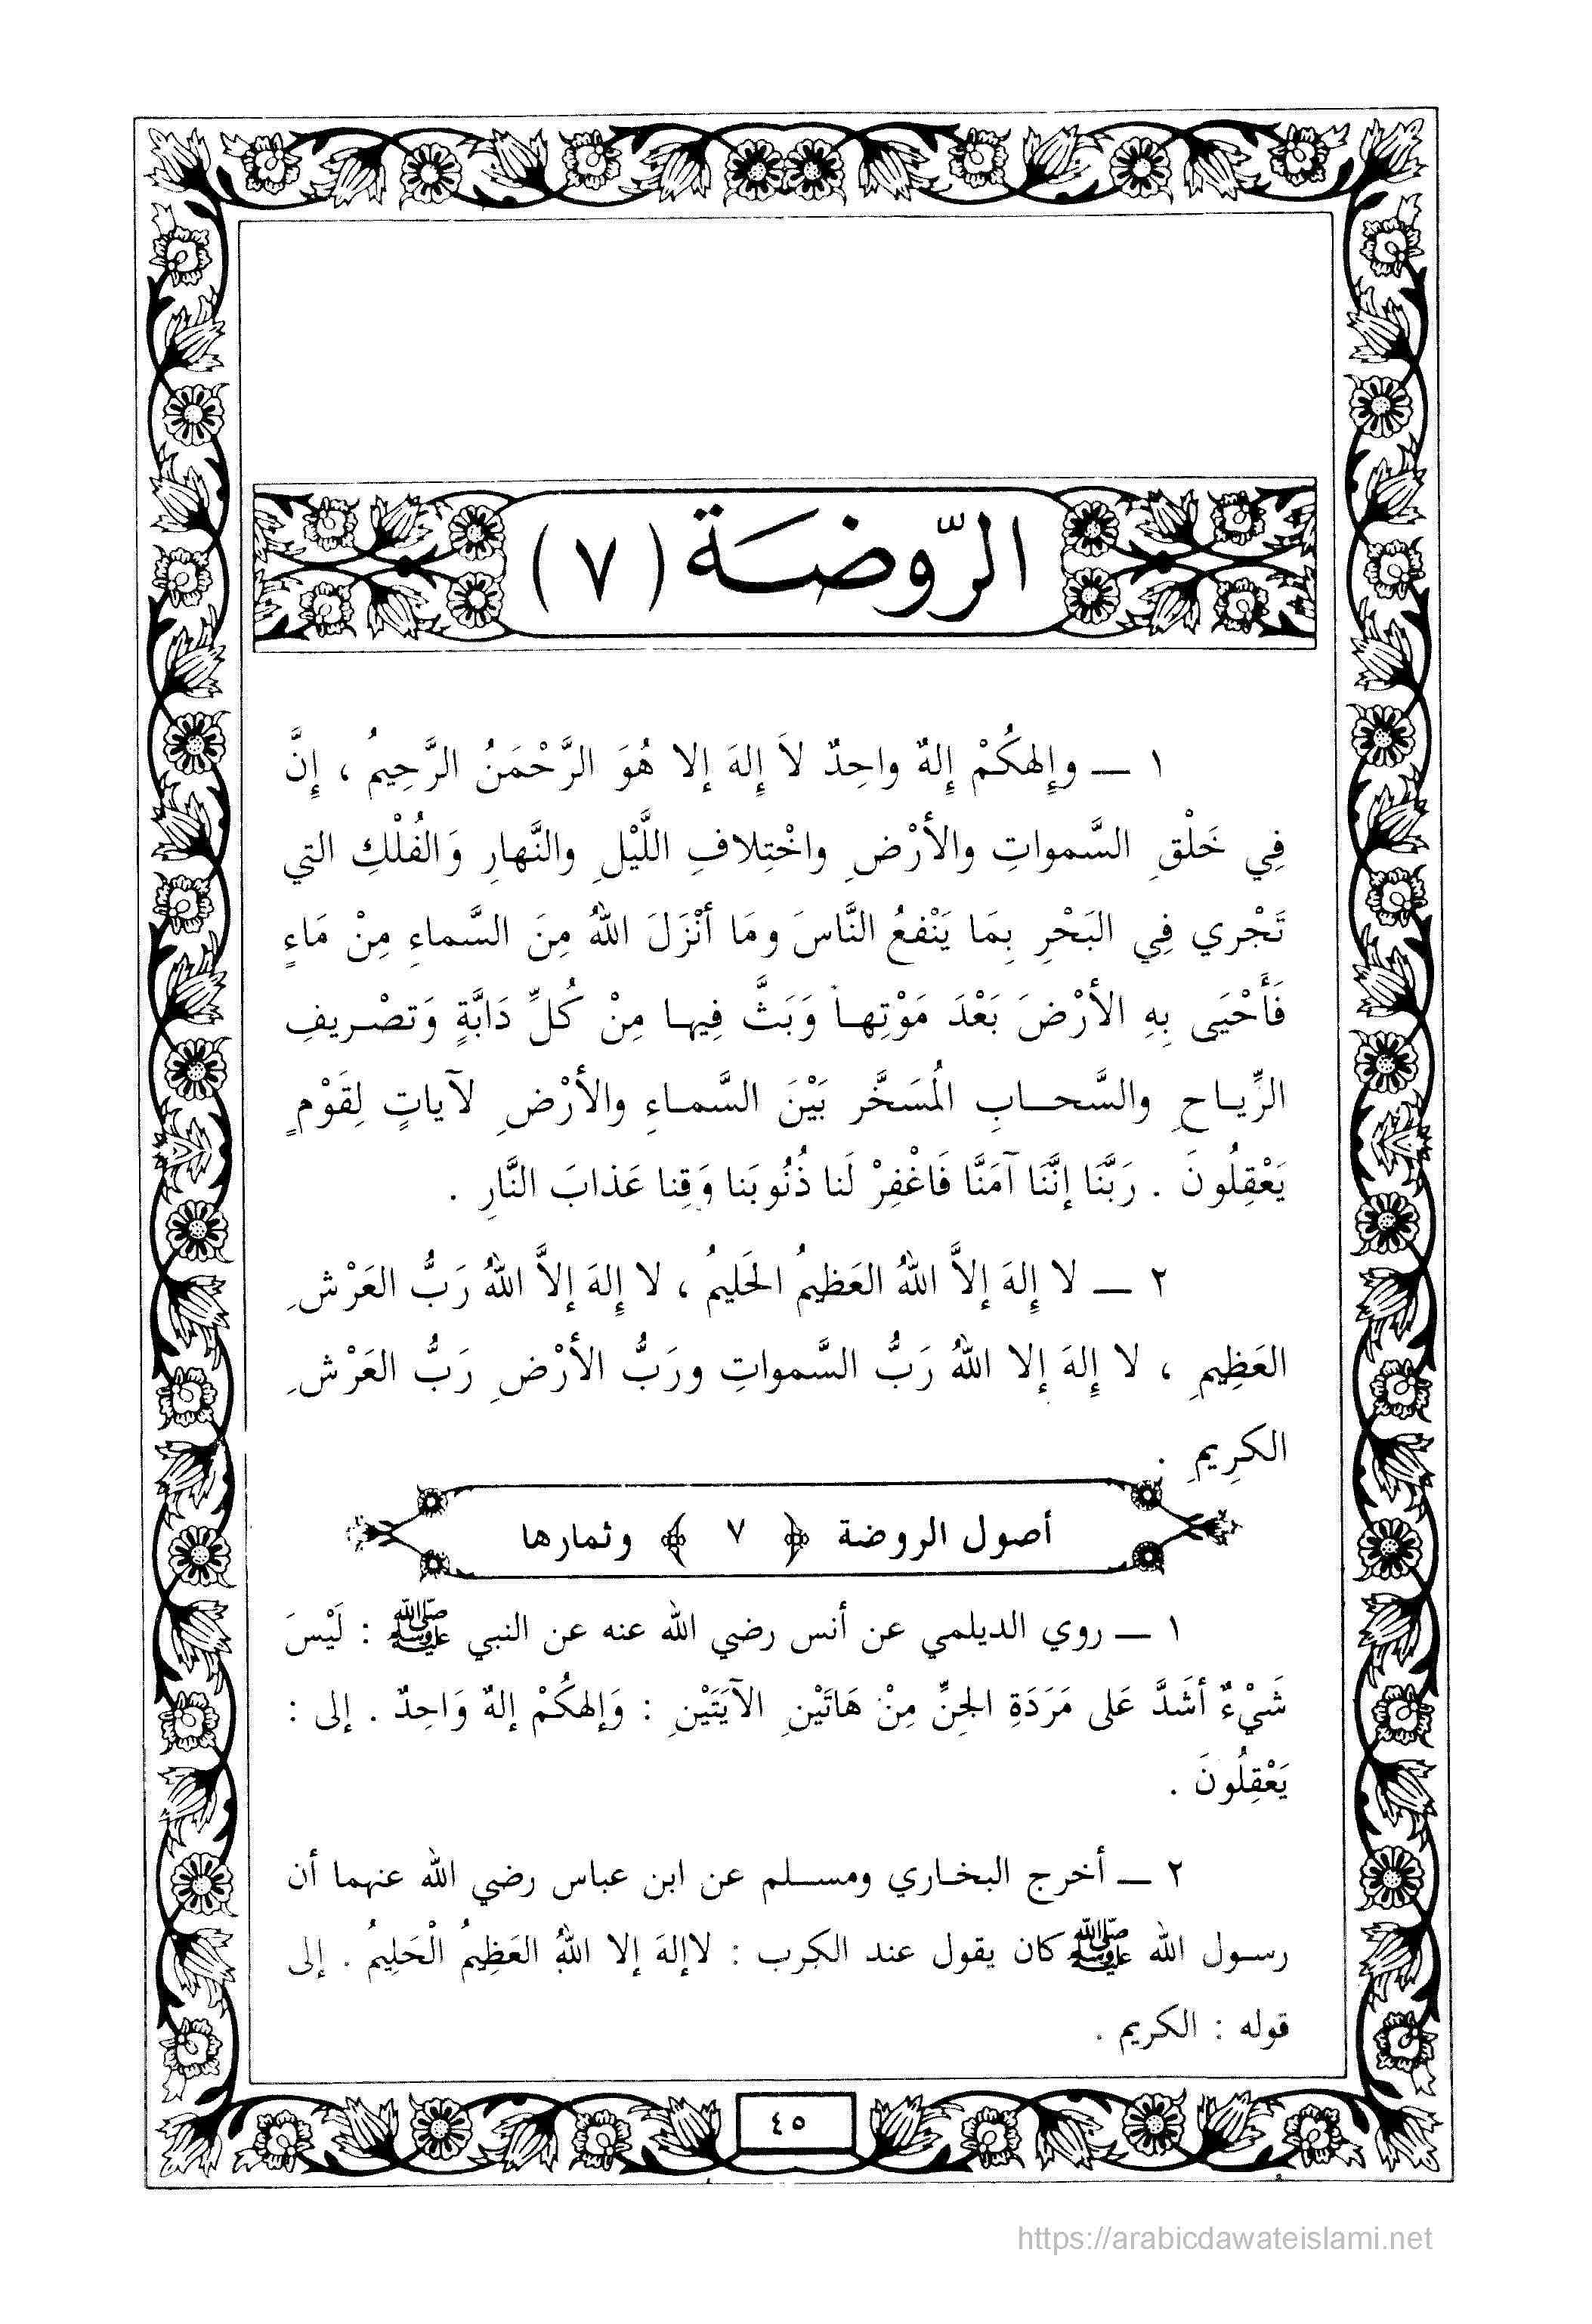 الرّوضة (٧)
١ ــ وإِلهكُمْ إِلهٌ واحِدٌ لاَ إِلهَ إلا هُوَ الرَّحْمَنُ الرَّحِيمُ ، إِنَّ
فِي خَلْقِ السَّمواتِ والأرْضِ واخْتِلافِ اللَّيْلِ والنَّهارِ وَالفُلْكِ التي
تَجْري فِي البَحْرِ بِمَا يَنْفعُ النَّاسَ ومَا أنْزَلَ اللهُ مِنَ السَّماءِ مِنْ مَاءٍ
فَأَحْيَى بِهِ الأرْضَ بَعْدَ مَوْتِها وَبَثَّ فِيها مِنْ كُلِّ دَابَّةٍ وَتصْريفِ
الرِّياحِ والسَّحابِ المُسَخَّر بَيْنَ السَّماءِ والأرْضِ لآياتٍ لِقَوْمٍ
يَعْقِلُونَ . رَبَّنَا إنَّنَا آمَنَّا فَاغْفِرْ لَنا ذُنُوبَنا وَقِنا عَذابَ النَّارِ .
٢ ــ لا إِلهَ إلاَّ اللهُ العَظِيمُ الحَليمُ ، لا إِلهَ إلاَّ اللهُ رَبُّ العَرْشِ
العَظِيمِ ، لا إِلهَ إلا اللهُ رَبُّ السَّمواتِ ورَبُّ الأرْضِ رَبُّ العَرْشِ
الكرِيمِ .
أصول الروضة ﴿ ٧ ﴾ وثمارها
١ ــ روي الديلمي عن أنس رضي الله عنه عن النبي ﷺ : لَيْسَ
شَيْءٌ أشَدَّ عَلى مَرَدَةِ الجِنِّ مِنْ هَاتَيْنِ الآيَتَيْنِ : وَإلهكُمْ إلهٌ وَاحِدٌ . إلى :
يَعْقِلُونَ .
٢ ــ أخرج البخاري ومسلم عن ابن عباس رضي الله عنهما أن
رسول الله ﷺ كان يقول عند الكرب : لاإلهَ إلا اللهُ العَظِيمُ الْحَلِيمُ . إلى
قوله : الكريم .
٤٥
https://arabicdawateislami.net